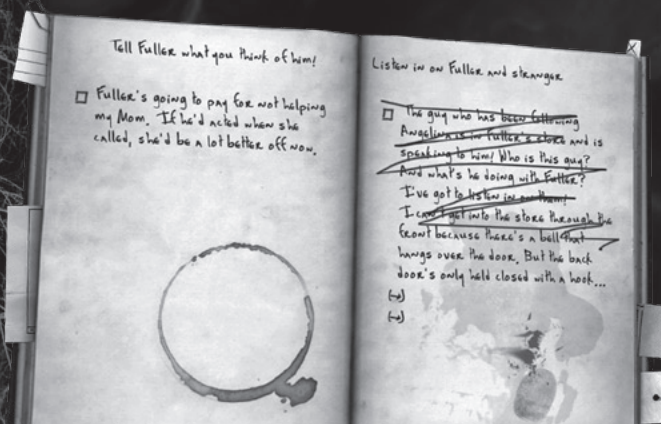 Tell Fuller what you think of him!
Fuller's going to pay for not helping
my Mom. If he'd acted when she
called, she'd be a lot better off now.
Listen in on Fuller and stranger
The guy who has been following
Angelina is in Fuller's store and is
speaking to him! Who is this guy?
And what's he doing with Fuller?
I've got to listen in on them!
I can't get into the store through the
front because there's a bell that
hangs over the door. But the back
door's only held closed with a hook...
(→)
(→)
X